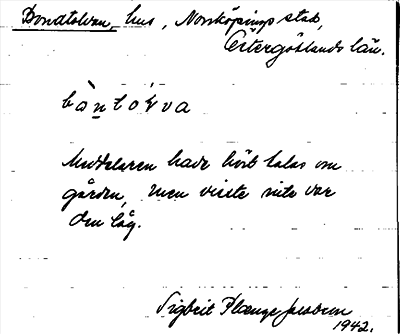 Bondtolvan, hus, Norrköpings stad,
Östergötlands län.
bòntól̀va
Meddelaren hade hört talas om
gården, men visste inte var
den låg.
Sigbrit Plænge Jacobson
1942.